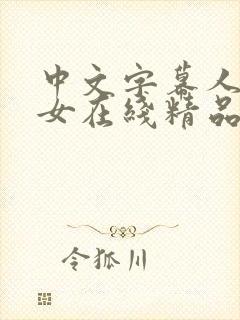 中文字幕人
女在线精品
令狐川